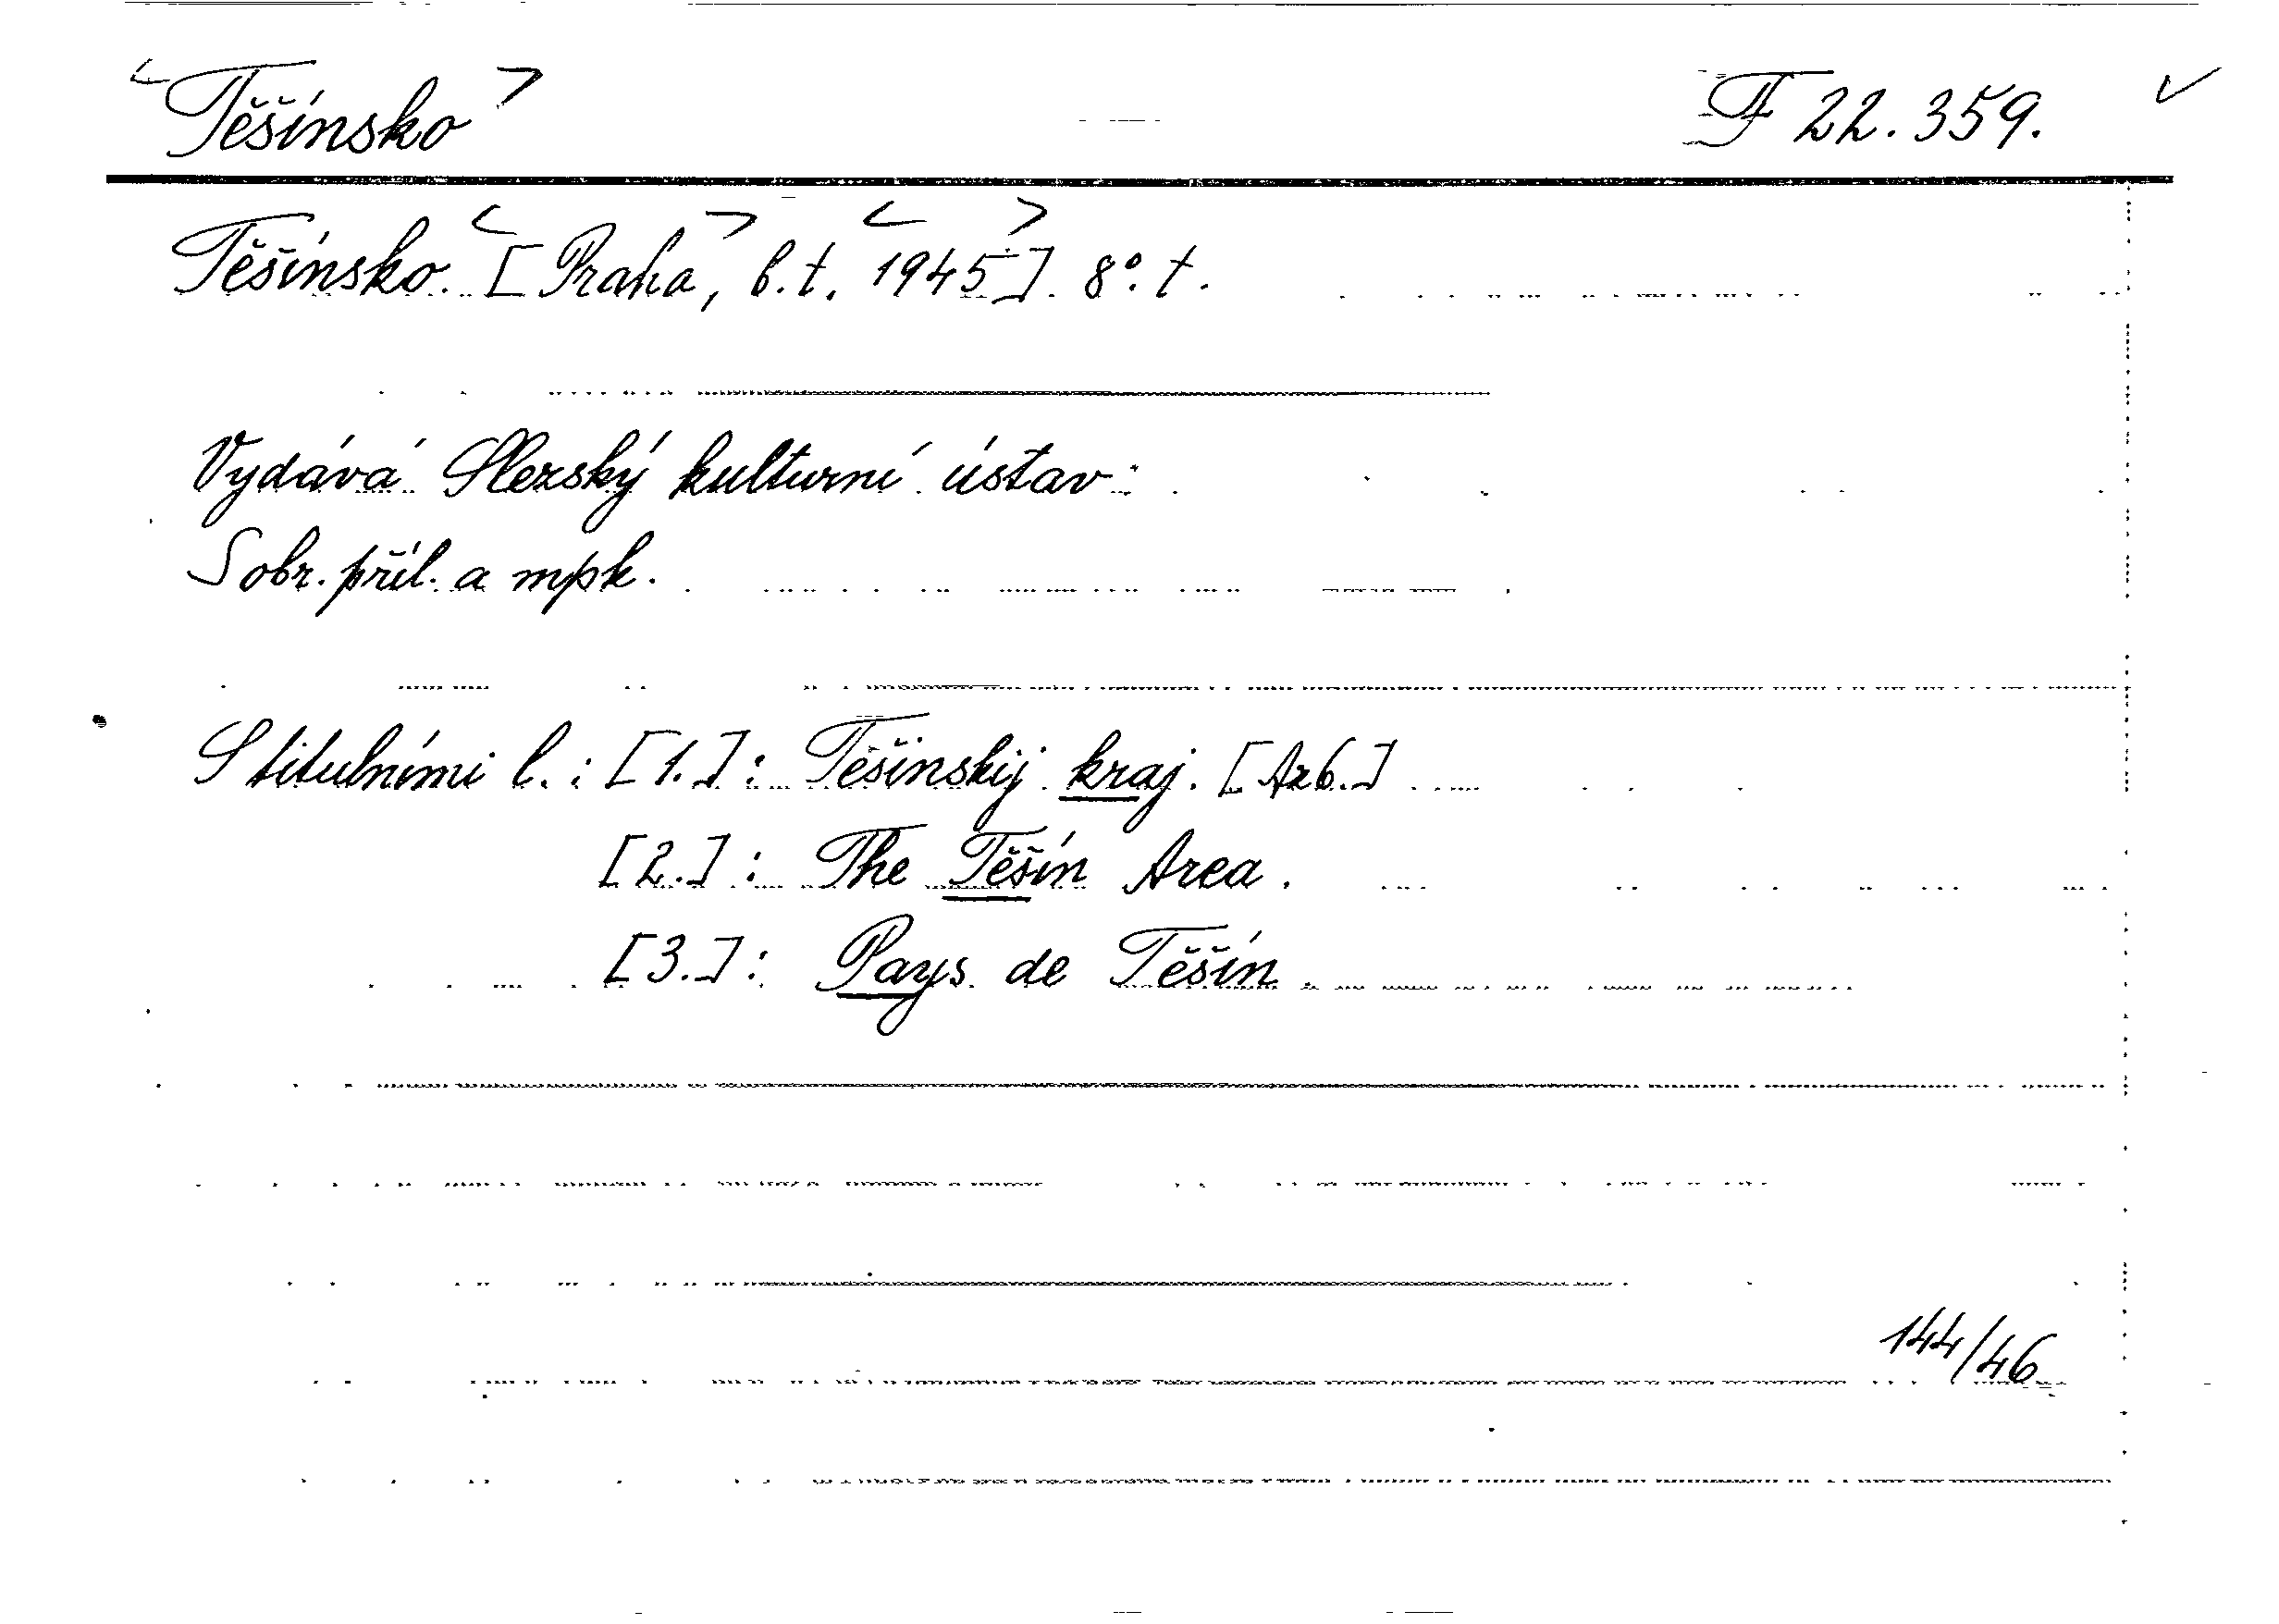 <Těšínsko> F 22.359. ✓
Těšínsko. [<Praha>, b.t. <1945>]. 8°. t.
Vydává Slezský kulturní ústav:
S obr. příl. a mpk.
S titulními l.: [1.]: Těšinskij kraj. [Azb.]
[2.]: The Těšín Area.
[3.]: Pays de Těšín.
144/46